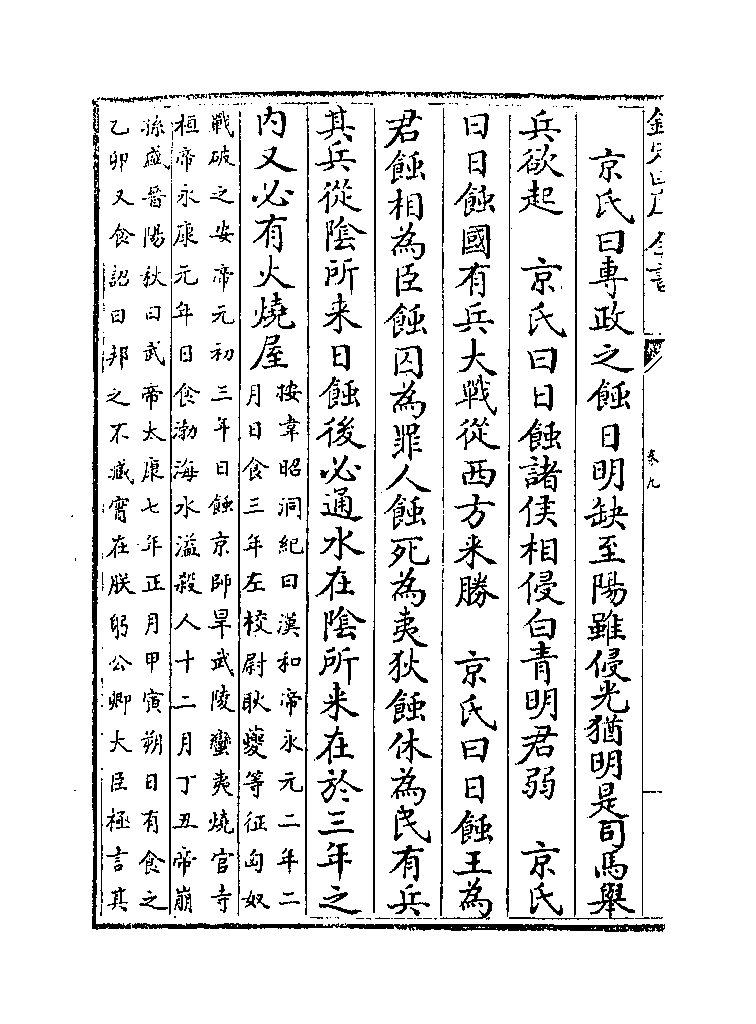 欽定四庫全書
卷九
京氏曰專政之蝕日明缺至陽雖侵光猶明是司馬舉
兵欲起　京氏曰日蝕諸侯相侵白青明君弱　京氏
曰日蝕國有兵大戰從西方来勝　京氏曰日蝕王為
君蝕相為臣蝕囚為罪人蝕死為夷狄蝕休為民有兵
其兵從陰所来日蝕後必通水在陰所来在於三年之
内又必有火燒屋
按韋昭洞紀曰漢和帝永元二年二
月日食三年左校尉耿夔等征匈奴
戰破之安帝元初三年日蝕京師旱武陵蠻夷燒官寺
桓帝永康元年日食渤海水溢殺人十二月丁丑帝崩
孫盛晉陽秋曰武帝太康七年正月甲寅朔日有食之
乙卯又食詔曰邦之不臧實在朕躬公卿大臣極言其